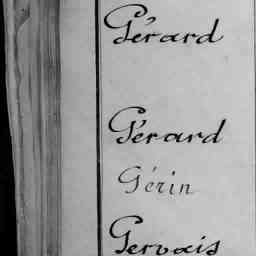 Gérard
Gérard
Gérin
Gervais